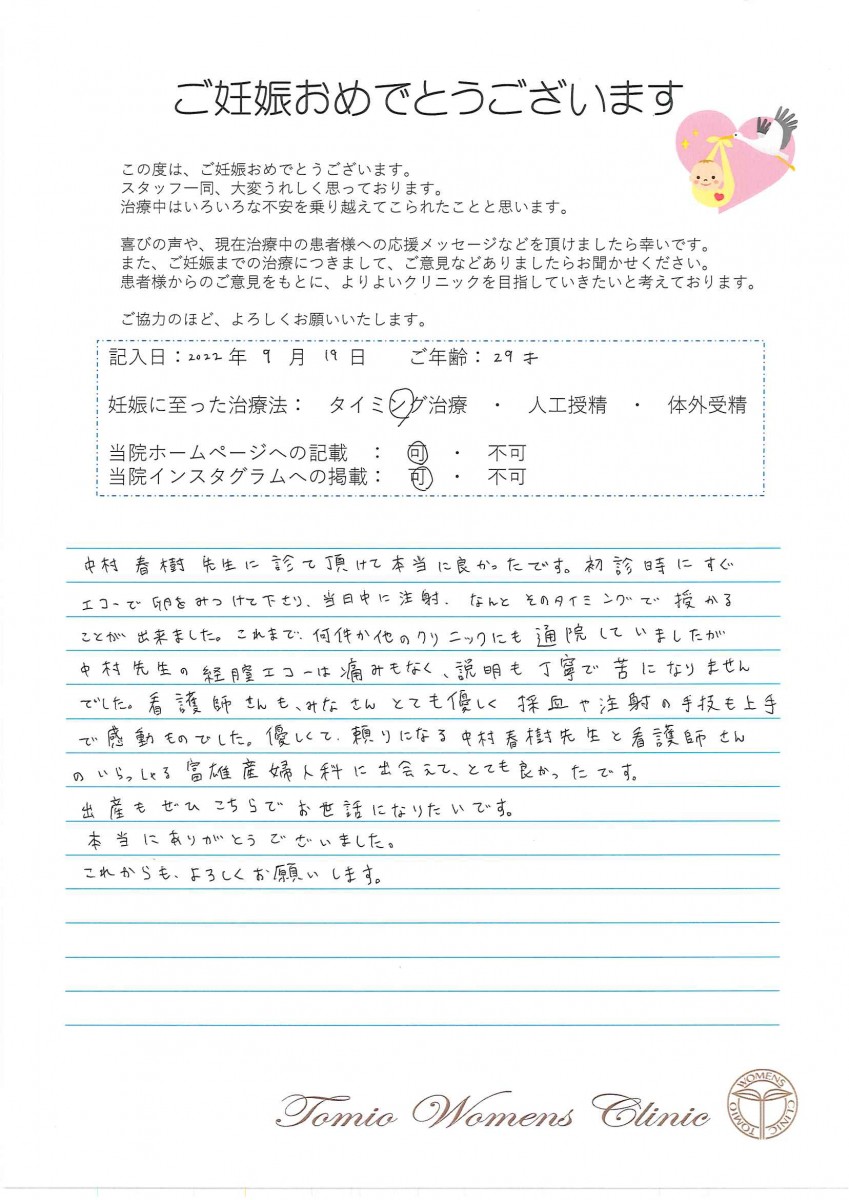 ご妊娠おめでとうございます
この度は、ご妊娠おめでとうございます。
スタッフ一同、大変うれしく思っております。
治療中はいろいろな不安を乗り越えてこられたことと思います。
喜びの声や、現在治療中の患者様への応援メッセージなどを頂けましたら幸いです。
また、ご妊娠までの治療につきまして、ご意見などありましたらお聞かせください。
患者様からのご意見をもとに、よりよいクリニックを目指していきたいと考えております。
ご協力のほど、よろしくお願いいたします。
記入日：2022年 9 月 19 日 ご年齢：29才
妊娠に至った治療法： タイミング治療 ・ 人工授精 ・ 体外受精
当院ホームページへの記載 ： 可 ・ 不可
当院インスタグラムへの掲載： 可 ・ 不可
中村春樹先生に診て頂けて本当に良かったです。初診時にすぐ
エコーで卵をみつけて下さり、当日中に注射、なんとそのタイミングで授かる
ことが出来ました。これまで、何件か他のクリニックにも通院していましたが
中村先生の経膣エコーは痛みもなく、説明も丁寧で苦になりません
でした。看護師さんも、みなさんとても優しく採血や注射の手技も上手
で感動ものでした。優しくて、頼りになる中村春樹先生と看護師さん
のいらっしゃる富雄産婦人科に出会えて、とても良かったです。
出産もぜひこちらでお世話になりたいです。
本当にありがとうございました。
これからも、よろしくお願いします。
Tomio Womens Clinic
TOMIO WOMENS CLINIC